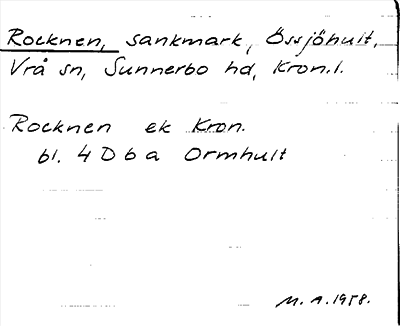 Rocknen, sankmark, Össjöhult,
Vrå sn, Sunnerbo hd, Kron.l.
Rocknen ek Kron.
bl. 4 D b a Ormhult
M. A. 1958.